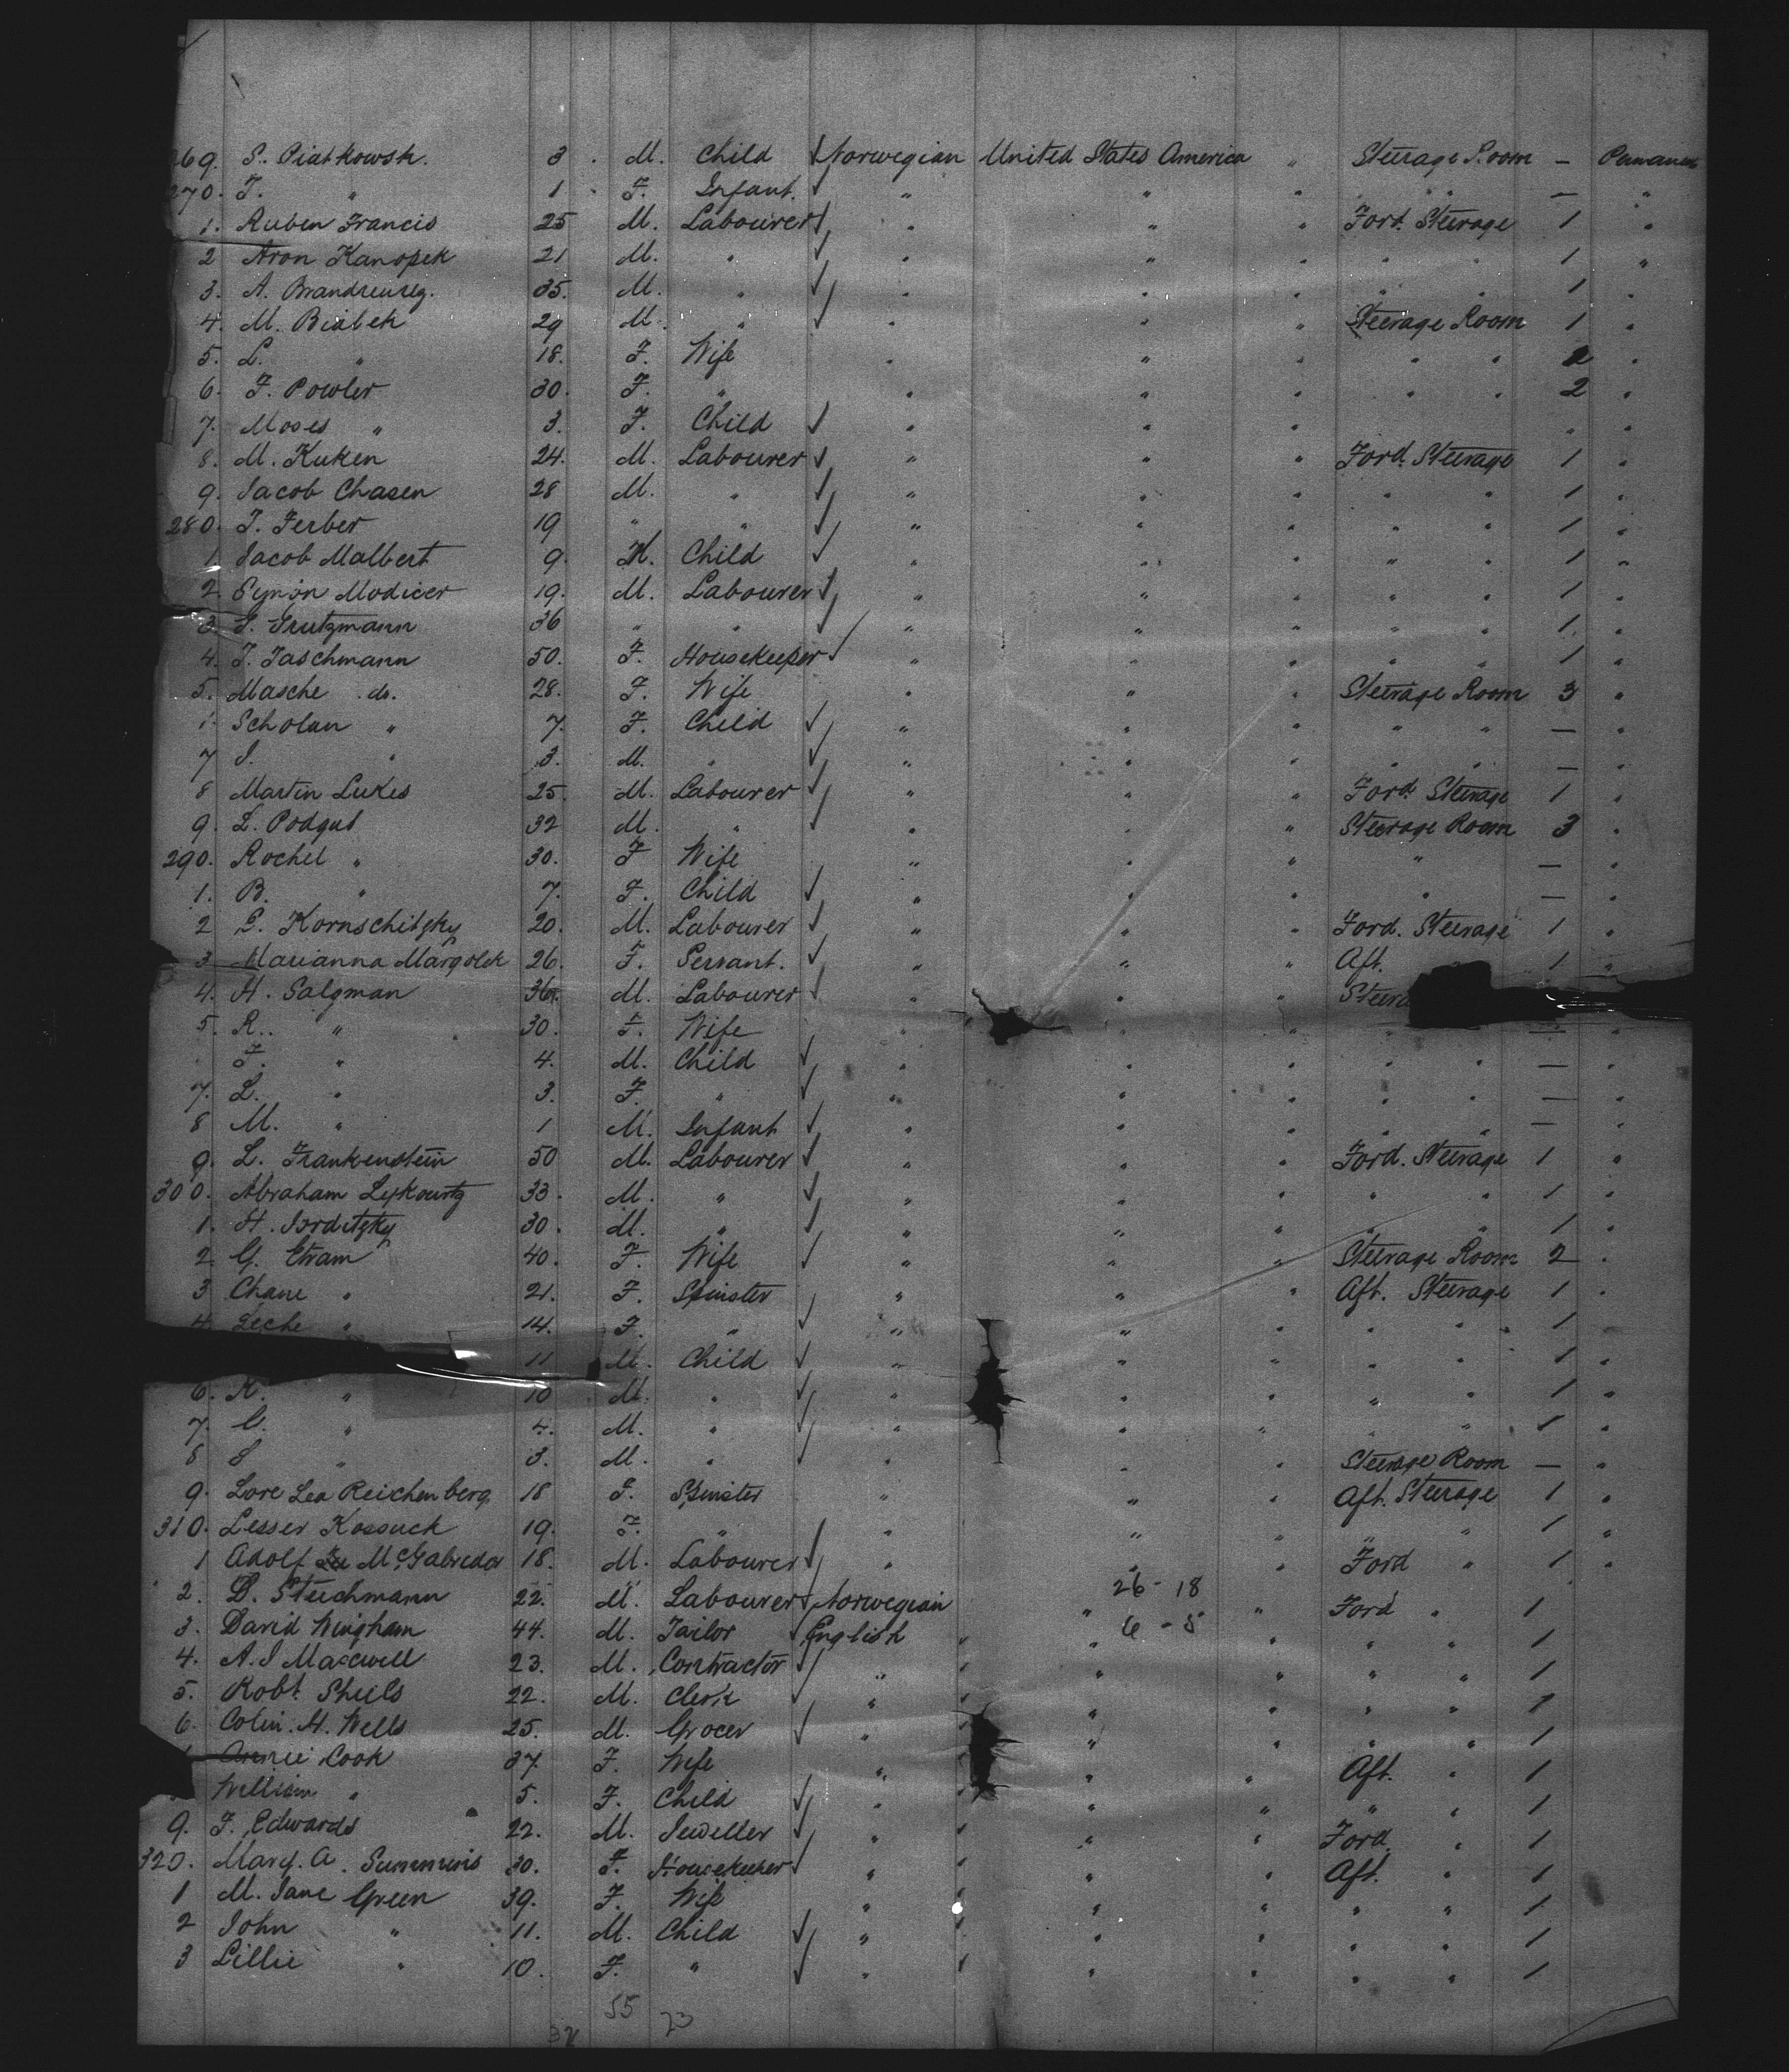 269. S. Piatkowsk. 3. M. Child Norwegian United States America " Steerage Room — Permanen
270. T. " 1 F. Infant. " " " " " — "
1. Ruben Francis 25 M. Labourer " " " Ford. Steerage 1 "
2 Aron Kanopek 21 M. " " " " " " 1 "
3. A. 35. M. " " " " " " 1 "
4. M. Bialek 29 M. " " " " Steerage Room 1 "
5. L. " 18. F. Wife " " " " " 2 "
6. F. Powler 30. F. " " " " " " 2 "
7. Moses " 3. F. Child " " " " " " "
8. M. Kuken 24. M. Labourer " " " Ford. Steerage 1 "
9. Jacob Chasen 28 M. " " " " " " 1 "
280. T. Ferber 19 " " " " " " " 1 "
1 Jacob Malbert 9. M. Child " " " " " 1 "
2. Symon Modicer 19. M. Labourer " " " " " 1 "
3. G. Grutzmann 36 " " " " " " " 1. "
4. T. Taschmann 50. F. Housekeeper " " " " " 1 "
5. Masche do. 28. F. Wife " " " Steerage Room 3 "
Scholan " 7. F. Child " " " " " — "
7 J. " 3. M. " " " " " " — "
8 Martin Lukes 25. M. Labourer " " " Ford. Steerage 1 "
9. L. Podgul 32 M. " " " " Steerage Room 3 "
290. Rochel " 30. F Wife " " " " — "
1. B. " 7. F. Child " " " " — "
2 S. Kornschitzky 20. M. Labourer " " " Ford. Steerage 1 "
3. Marianna Margolck 26. F. Servant. " " " Aft. " 1 "
4. H. Salzman 36. M. Labourer " " " Steera
5. R. " 30. F. Wife " " " " " — "
F. " 4. M. Child " " " " " — "
7. L. " 3. F. " " " " " " — "
8 M. " 1 M. Infant " " " " " — "
9. L. Frankenstein 50 M. Labourer " " " Ford. Steerage 1 "
300. Abraham Lyskourtz 33. M. " " " " " " 1 "
1. H. Isorditzky 30. M. " " " " " " 1 "
2. G. Etram 40. F. Wife " " " Steerage Room 2 "
3 Chane " 21. F. Spinster " " " Aft. Steerage 1 "
4. Leche " 14. F. " " " " " " 1 "
11 M. Child " " " " " 1 "
6. K. " 10 M. " " " " " " 1 "
7. G. " 4. M. " " " " " " 1 "
8 S " 3. M. " " " " Steerage Room — "
9. Lore Lea Reichenberg. 18 F. Spinster " " " Aft. Steerage 1 "
310. Lesser Kossuck 19. F. " " " " " " 1 "
1 Adolf McGabreder 18. M. Labourer " " " Ford " 1 "
26 - 18
2. D. Steichmann 22. M. Labourer Norwegian " " Ford " 1
6 - 5
3. David Wingham 44. M. Tailor English " " " " " 1
4. A. J Maxwell 23. M. Contractor " " " " " " 1
5. Robt. Shiels 22. M. Clerk " " " " " " 1
6. Colin. H. Wells 25. M. Grocer " " " " " " 1
Annie Cook 37. F. Wife " " " " Aft. " 1
William " 5. F. Child " " " " " " 1
9. F. Edwards 22. M. Jeweller " " " " Ford. " 1
320. Mary. A. Summuris 30. F. Housekeeper " " " Aft. " 1
1 M. Jane Green 39. F. Wife " " " " " 1
2 John " 11. M. Child " " " " " 1
3 Lillie " 10. F. " " " " " " 1
55 23
32